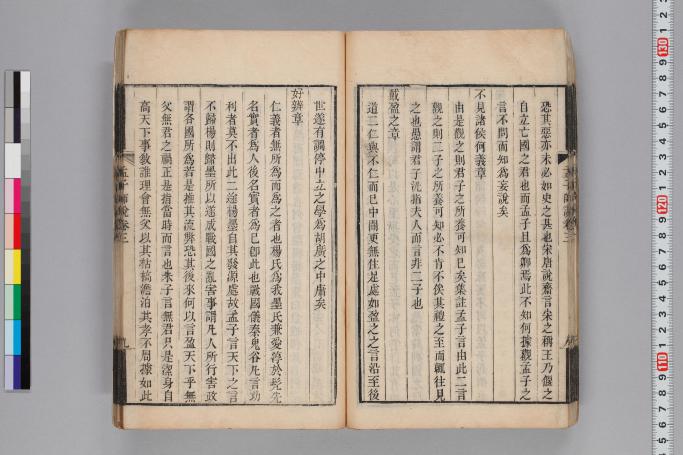 恐其惡亦未必如史之甚也宋唐說齋言宋之稱王乃偃之
自立亡國之君也而孟子且為卿焉此不知何據觀孟子之
言不問而知為妄說矣
不見諸侯何義章
由是觀之則君子之所養可知已矣集註孟子言由此二言
觀之則二子之所養可知必不肯不俟其禮之至而輒往見
之也愚謂君子汎指夫人而言非二子也
戴盈之章
道二仁與不仁而已中間更無住足處如盈之之言沿至後
世遂有調停中立之學為胡廣之中庸矣
好辨章
仁義者無所為而為之者也楊氏為我墨氏兼愛淳于髠先
名實者為人後名實者為己即此也戰國儀秦鬼谷凡言功
利者莫不出此二途楊墨自其發源處故孟子言天下之言
不歸楊則歸墨所以遂成戰國之亂害事謂凡人所行害政
謂各國所為若是推其流弊恐其後來何以言盈天下乎無
父無君之禍正是指當時而言也朱子言無君只是潔身自
高天下事教誰理會無父以其枯槁澹泊其孝不周據如此
孟子師說卷三
九